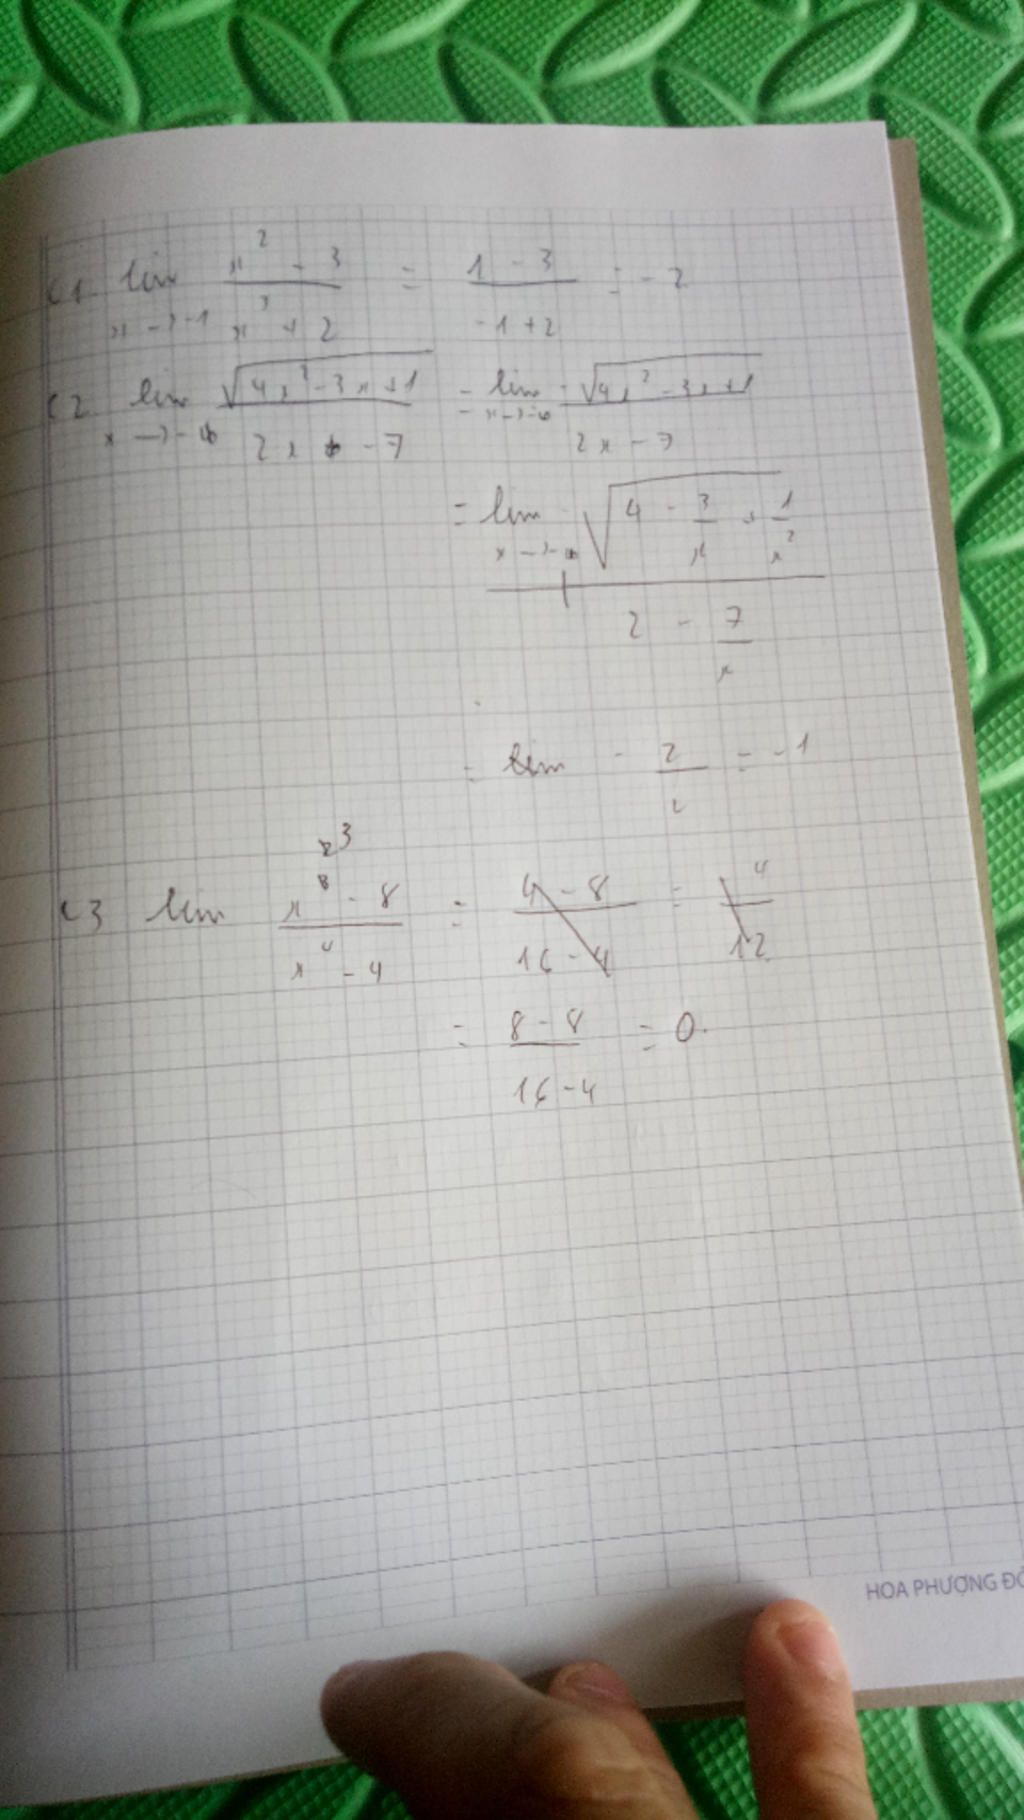 C1 lim x² - 3 / x³ + 2 = 1 - 3 / -1 + 2 = -2
x → -1
C2 lim √4x² - 3x + 1 / 2x - 7 = lim - √4x² - 3x + 1 / 2x - 7
x → -∞ x → -∞
= lim - √4 - 3/x + 1/x² / 2 - 7/x
x → -∞
= lim - 2/2 = -1
C3 lim x³ - 8 / x⁴ - 4 = 4 - 8 / 16 - 4 = 4 / 12
= 8 - 8 / 16 - 4 = 0
HOA PHƯỢNG ĐỎ